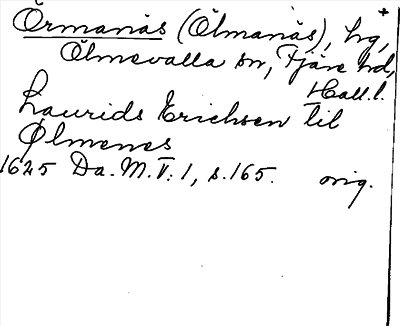 Örmanäs (Ölmanäs), hg,
Ölmevalla sn, Fjäre hd,
Hall.l.
Laurids Erichsen til
Ølmenes
1625 Da. M. V: 1, s. 165. orig.